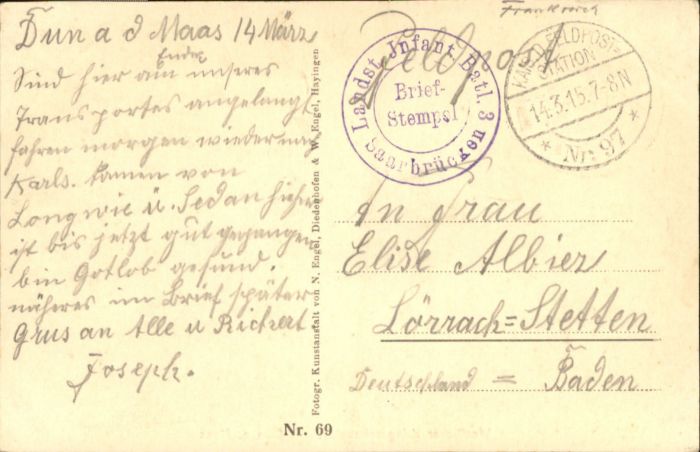 Dun a d Maas 14 März
Sind hier am Ende unseres
Transportes angelangt
fahren morgen wieder nach
Karls. kamen von
Longwie u. Sedan hieher
ist bis jetzt gut gegangen
bin Gotlob gesund.
näheres im Brief später
Grus an Alle u Richert
Joseph.
Fotogr. Kunstanstalt von N. Engel, Diedenhofen & W. Engel, Hayingen
Nr. 69
Frankreich
Feldpost
Landst. Infant. Batl. 3
Brief-
Stempel
Saarbrücken
KAIS. D. FELDPOST=
STATION
14.3.15. 7-8N
* Nr. 97 *
An Frau
Elise Albiez
Lörrach=Stetten
Deutschland = Baden